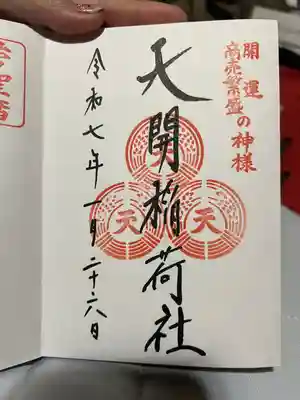 開運
商売繁盛の神様
天開稲荷社
天
天
天
令和七年一月二十六日